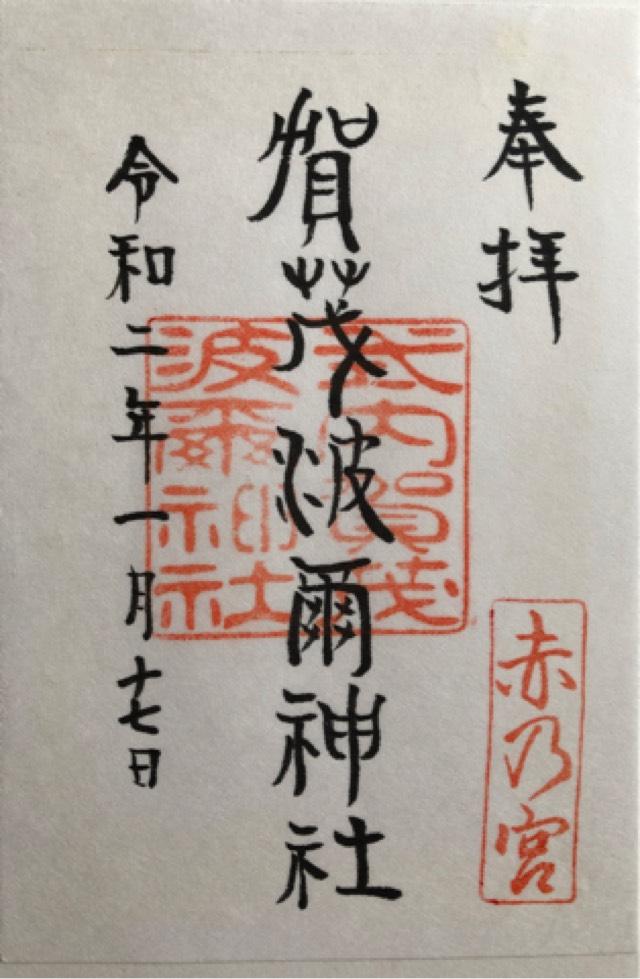 奉拝
赤乃宮
賀茂波爾神社
式内賀茂
波爾神社
令和二年一月十七日